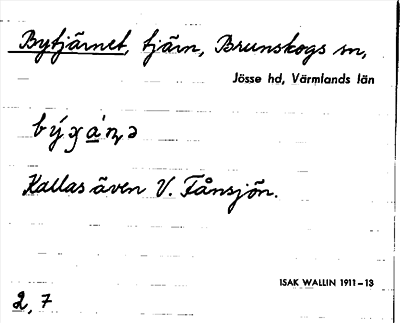 Bytjärnet, tjärn, Brunskogs sn,
Jösse hd, Värmlands län
Kallas även V. Tånsjön.
ISAK WALLIN 1911–13
2, 7